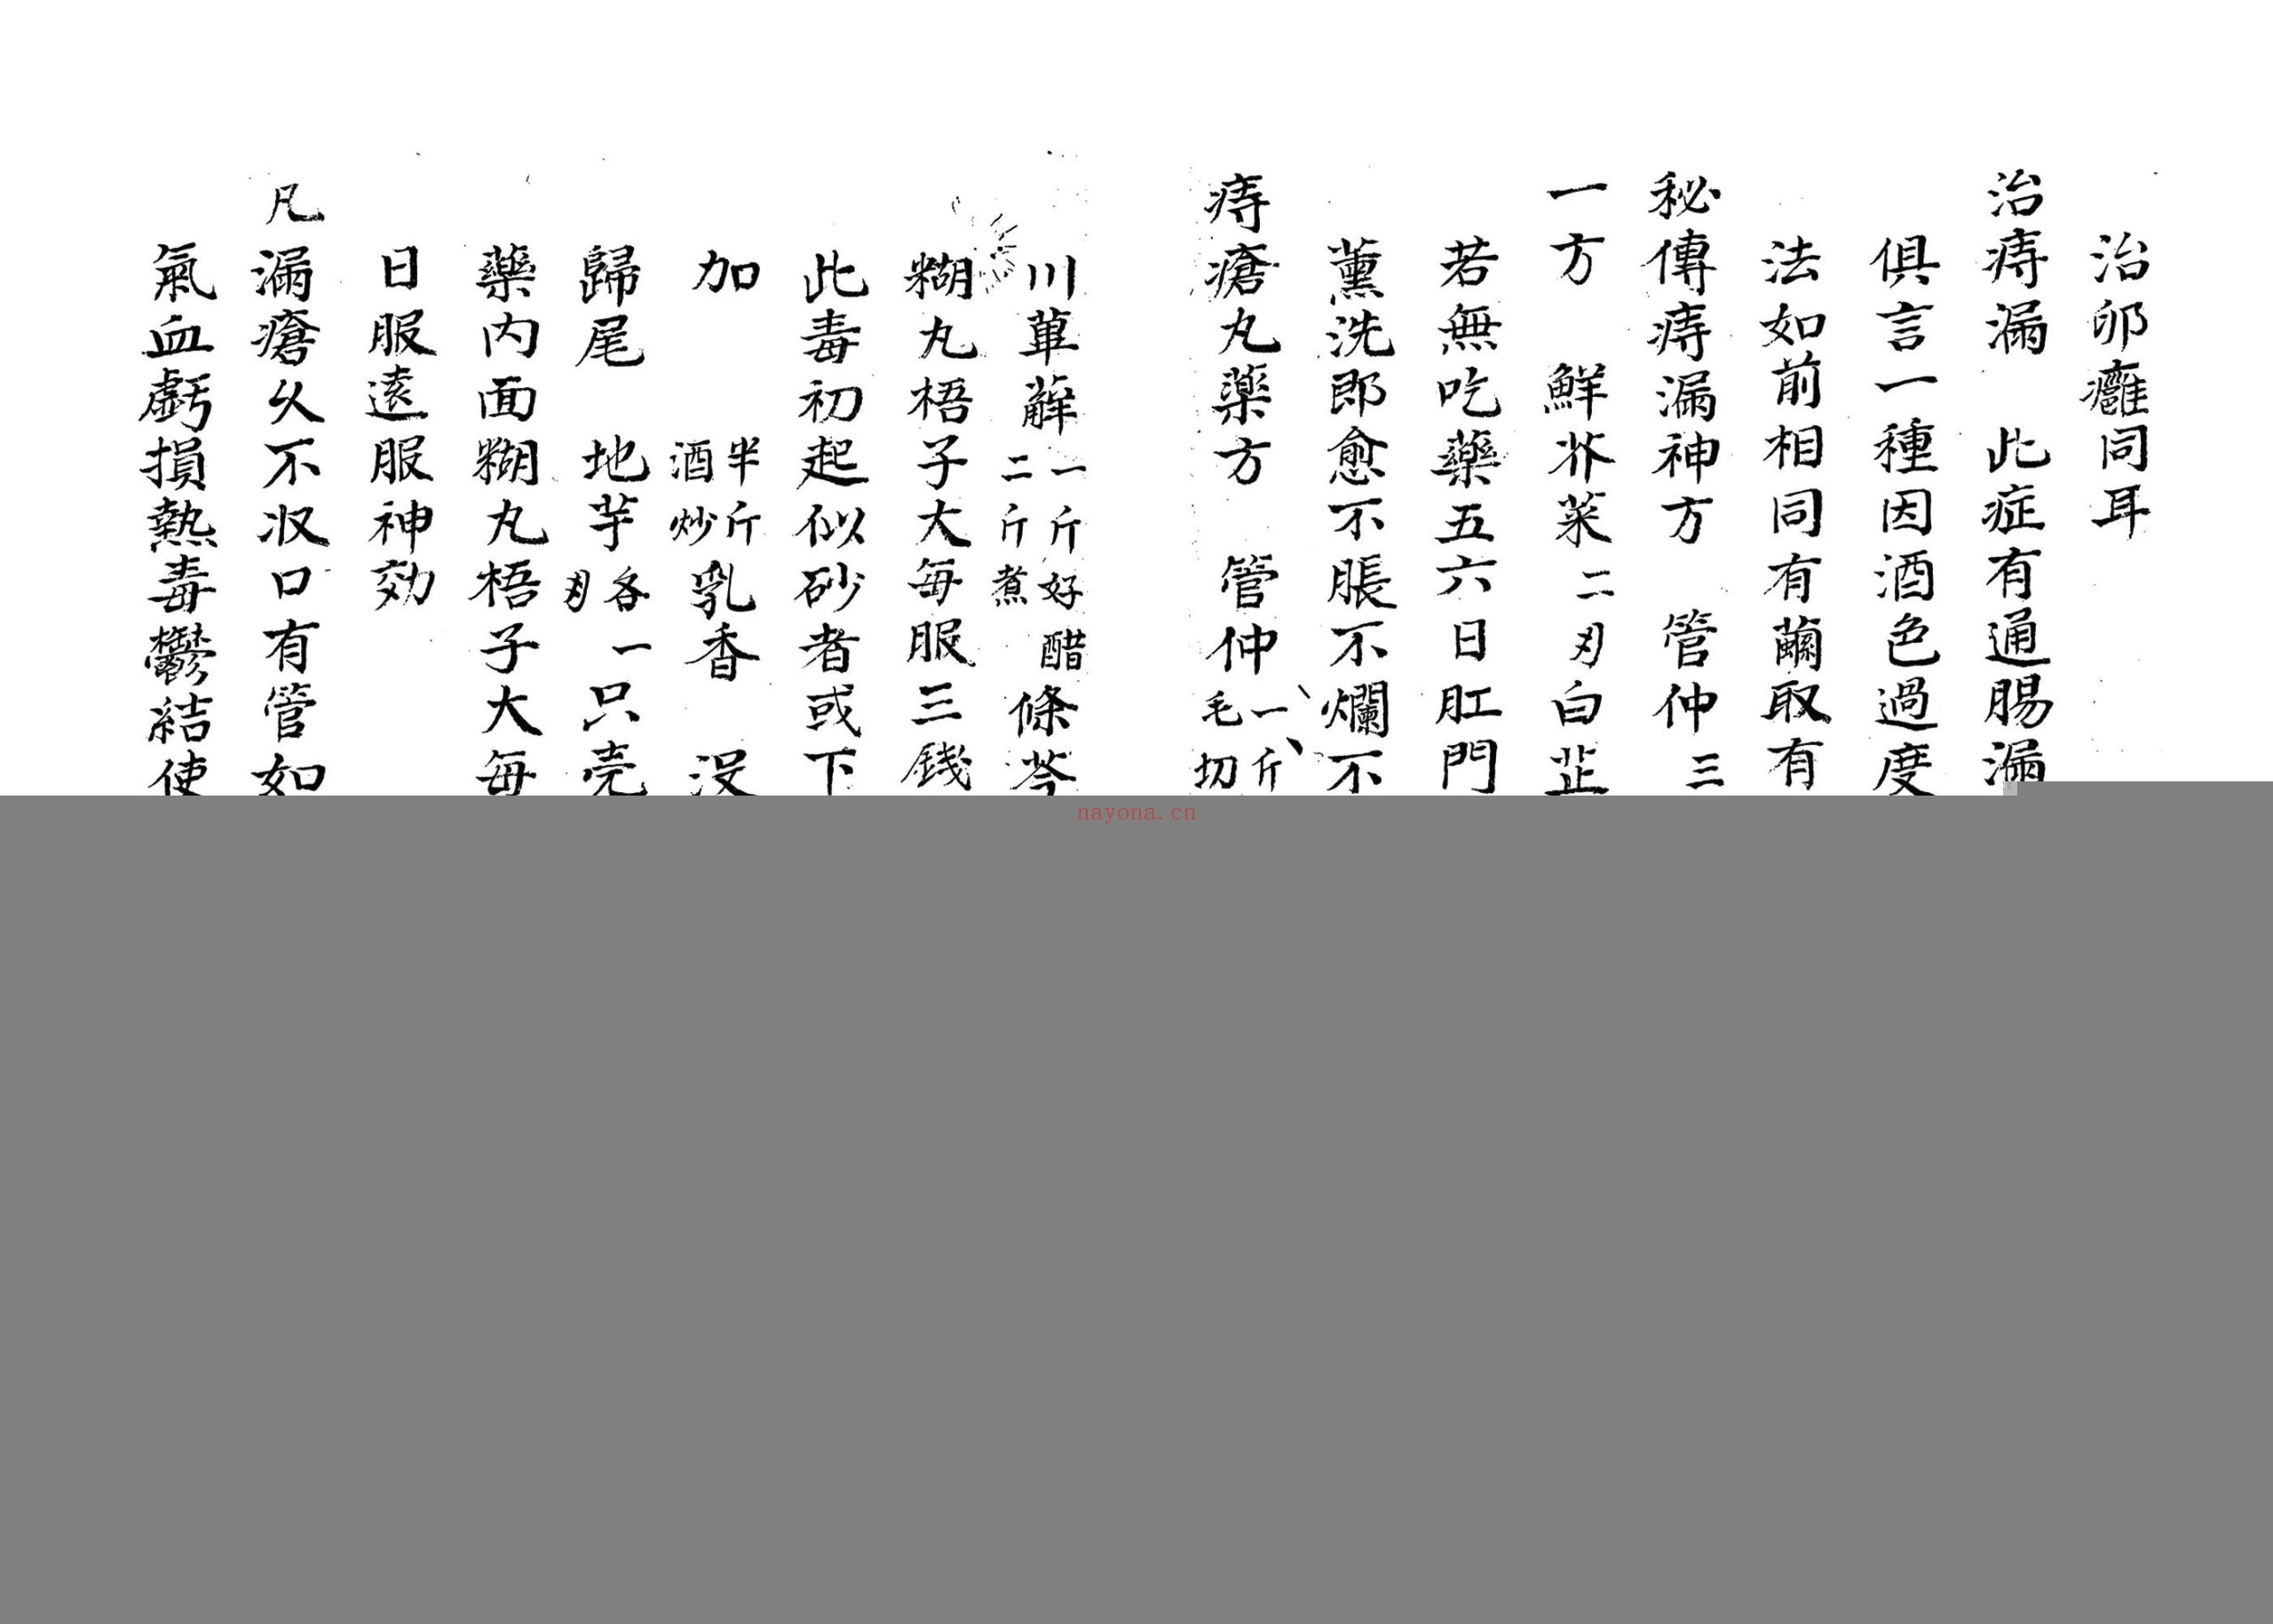 治卵癰同耳
治痔漏 此症有通腸漏
俱言一種因酒色過度
法如前相同有薾取有
秘傳痔漏神方 管仲三
一方 鮮芥菜二刄白芷
若無吃藥五六日肛門
薰洗即愈不脹不爛不
痔瘡丸藥方 管仲一斤毛切
川萆薢一斤好醋二斤煮條芩
糊丸梧子大每服三錢
此毒初起似砂者或下
加 半斤酒炒乳香 没
歸尾 地芋各一刄 只壳
藥内面糊丸梧子大每
日服遠服神効
凡漏瘡久不収口有管如
氣血虧損熱毒鬱結使
nayona.cn